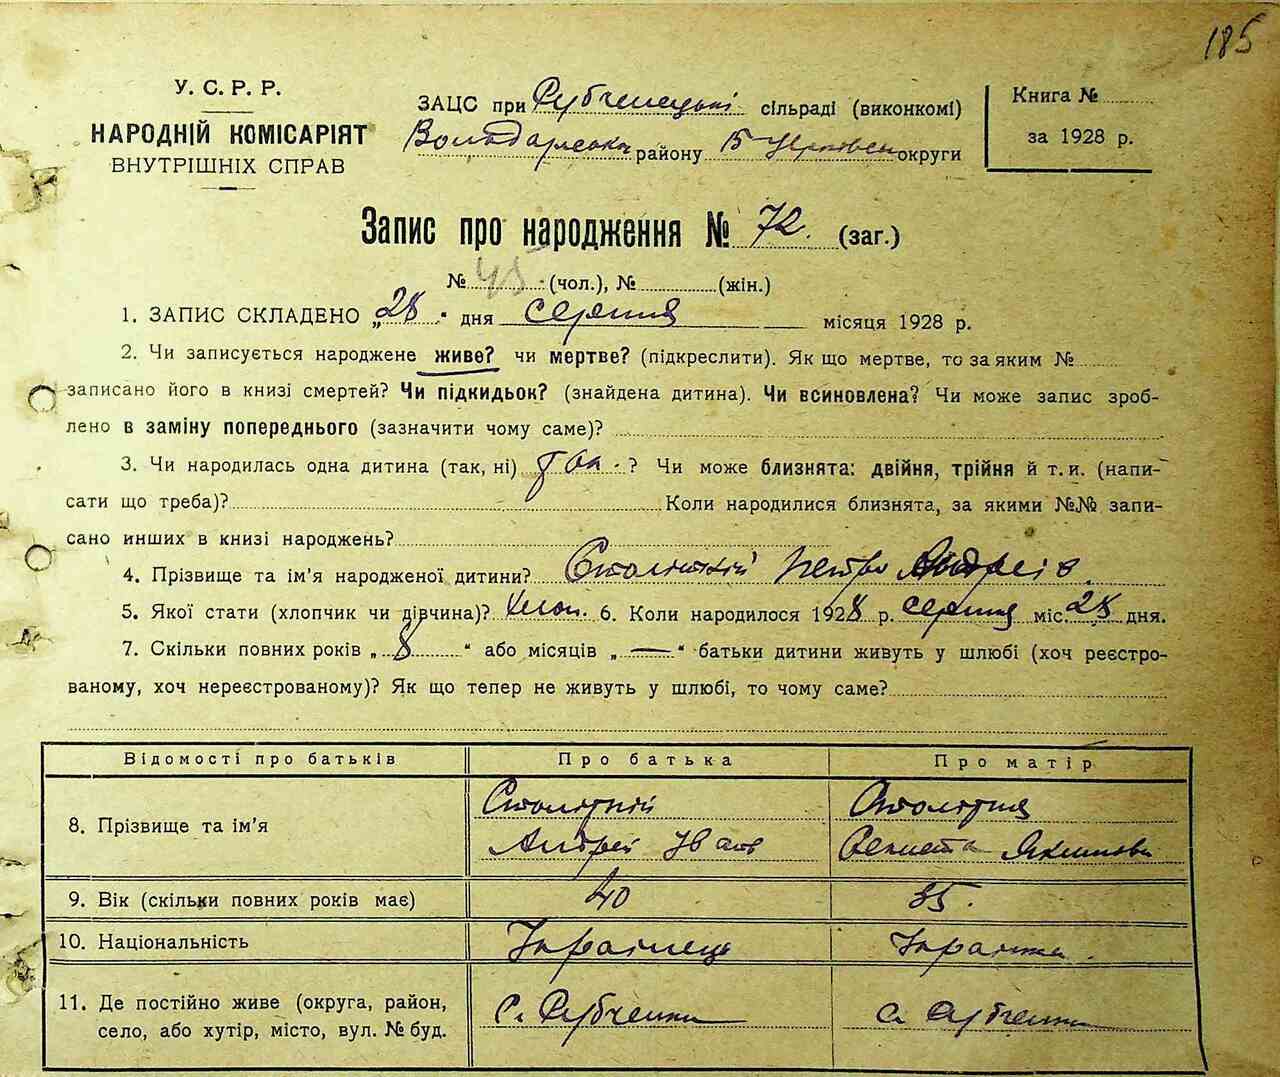 185
У. С. Р. Р.
НАРОДНІЙ КОМІСАРІЯТ
ВНУТРІШНІХ СПРАВ
ЗАЦС при Рубченецькі сільраді (виконкомі)
Володарська району Б-Церковск округи
Книга №
за 1928 р.
Запис про народження № 72. (заг.)
№ 45 (чол.), № (жін.)
1. ЗАПИС СКЛАДЕНО „28“ дня серпня місяця 1928 р.
2. Чи записується народжене живе? чи мертве? (підкреслити). Як що мертве, то за яким №
записано його в книзі смертей? Чи підкидьок? (знайдена дитина). Чи всиновлена? Чи може запис зроб-
лено в заміну попереднього (зазначити чому саме)?
3. Чи народилась одна дитина (так, ні) ? Чи може близнята: двійня, трійня й т. и. (напи-
сати що треба)? Коли народилися близнята, за якими №№ запи-
сано инших в книзі народжень?
4. Прізвище та ім'я народженої дитини? Столітній Петро Андреів
5. Якої стати (хлопчик чи дівчина)? Хлоп. 6. Коли народилося 1928 р. серпня міс. 28 дня.
7. Скільки повних років „8“ або місяців „—“ батьки дитини живуть у шлюбі (хоч реєстро-
ваному, хоч нереєстрованому)? Як що тепер не живуть у шлюбі, то чому саме?
Відомості про батьків Про батька Про матір
8. Прізвище та ім'я Столітній Столітня
Андрей Іванів Якимовн
9. Вік (скільки повних років має) 40 35.
10. Національність Украінець Украінка.
11. Де постійно живе (округа, район, с. Рубченки с. Рубченки
село, або хутір, місто, вул. № буд.